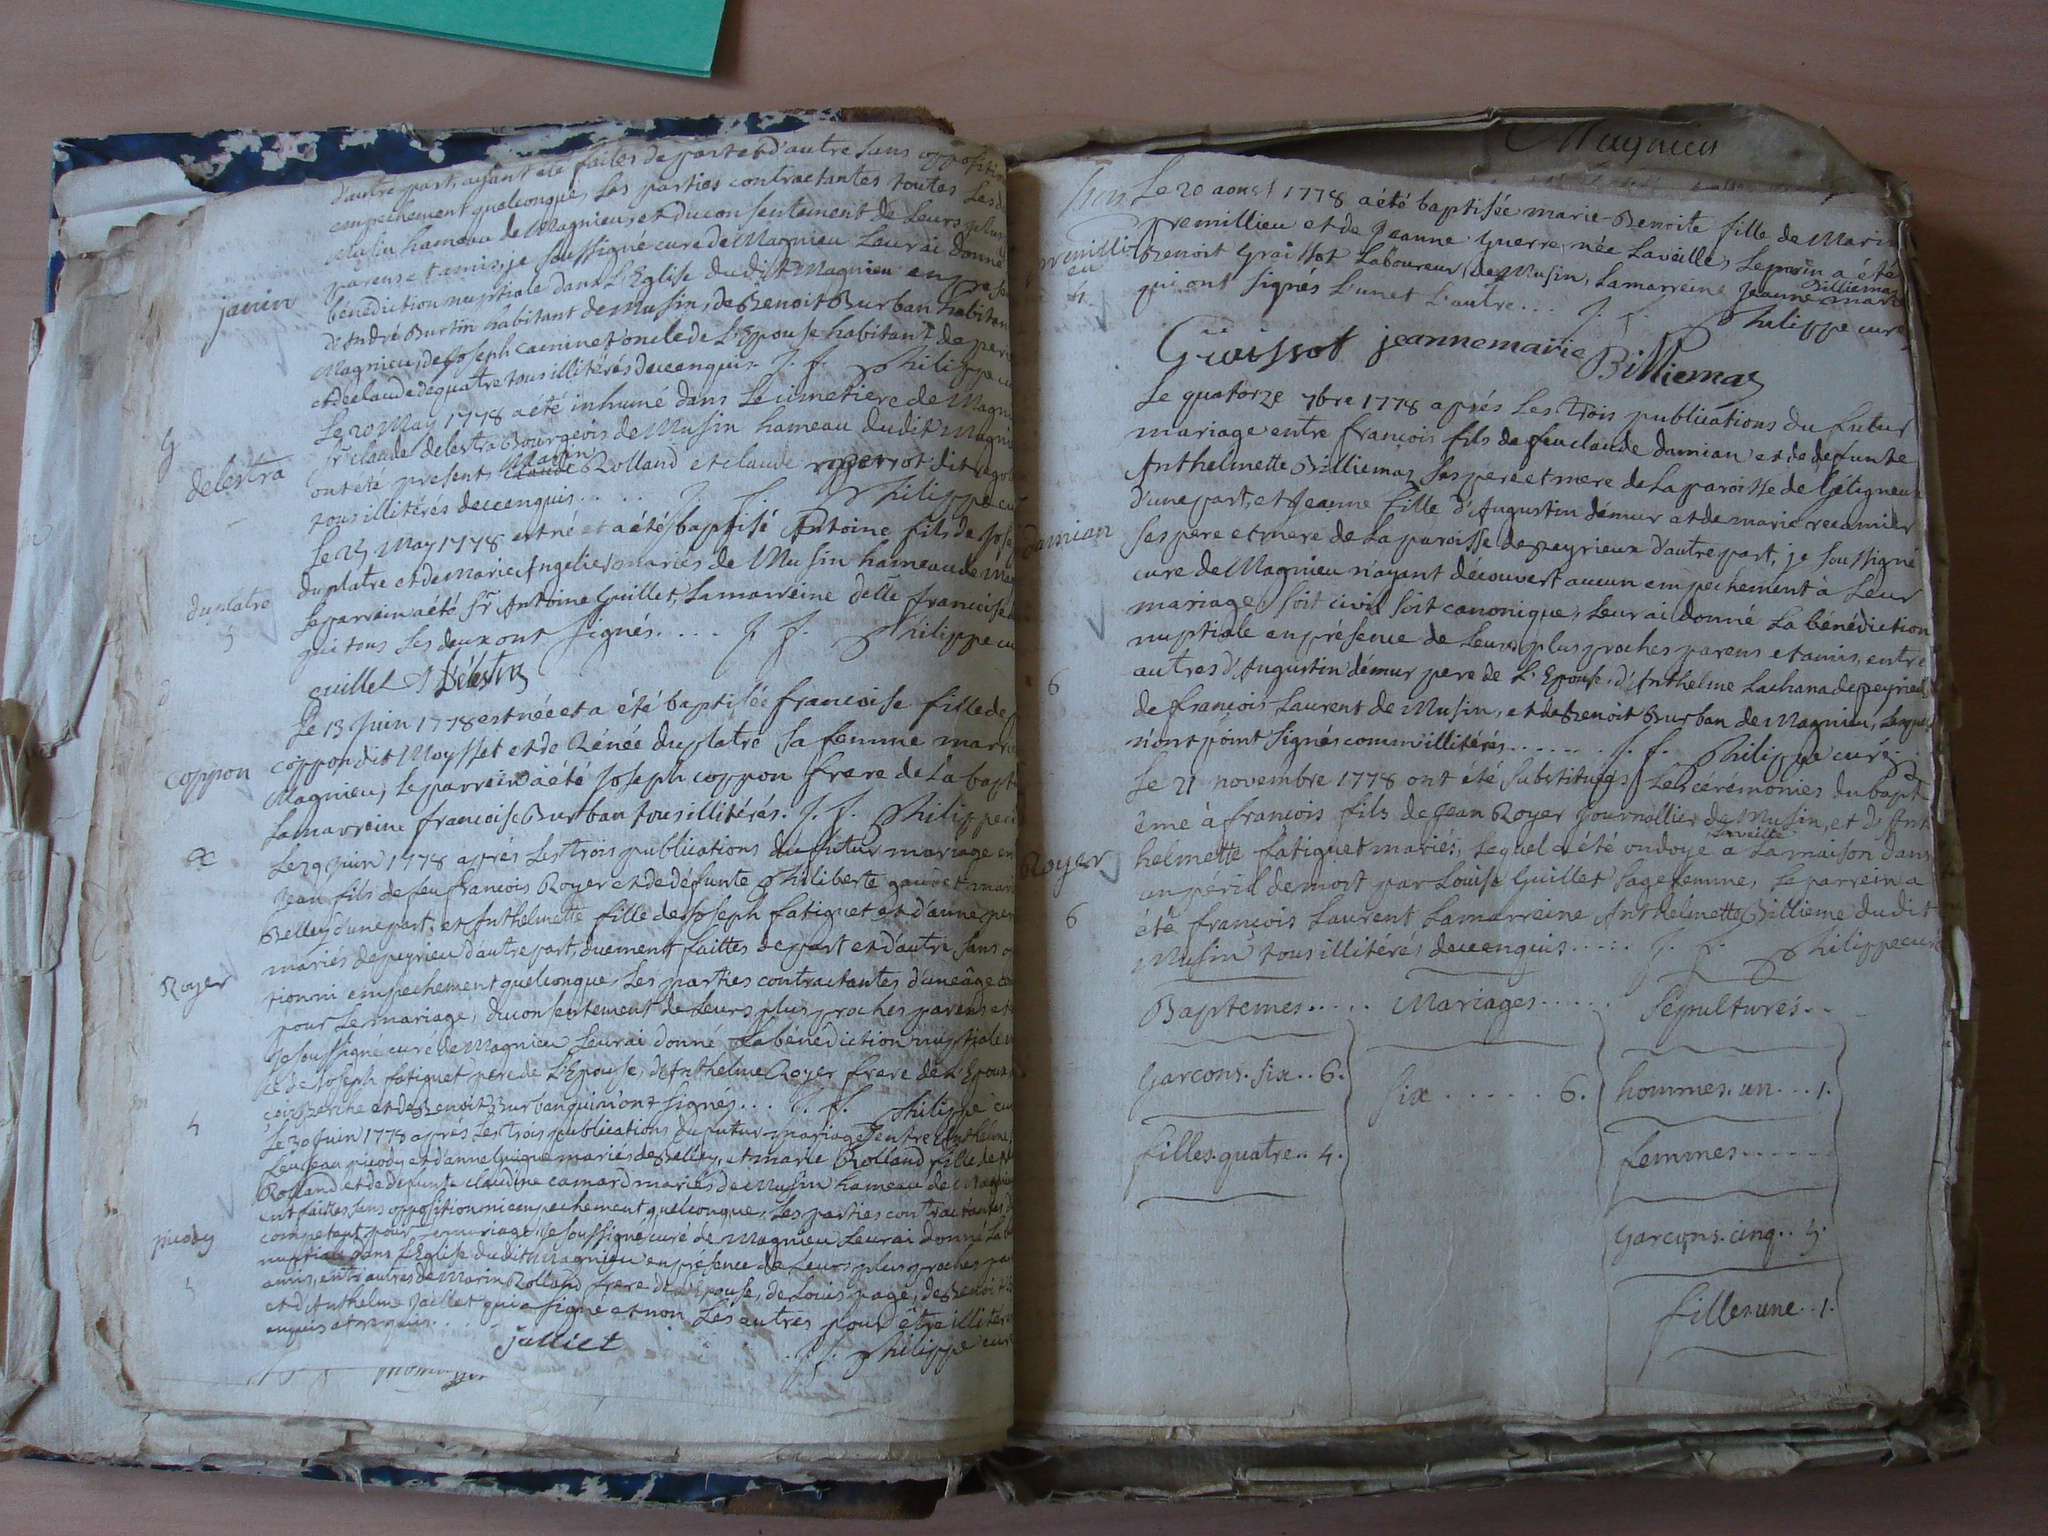 d'autre part, ayant été faites de part et d'autre sans opposition
empechement quelconque, Les parties contractantes toutes Les d
Musin hameau de Magnieu, et du consentement de Leurs plus
parens et amis, je soussigné curé de Magnieu Leur ai donné
bénédiction nuptiale dans L'Eglise dudit Magnieu en prese
janin
d'André Burtin habitant de Musin, de Benoit Burban habitan
Magnieu, de Joseph oncle de L'Epouse habitant de peri
et de claude dequatre tous illitérés de ce enquis. J. f. Philippe cu
Le 20 May 1778 a été inhumé dans Le cimetiere de Magni
Sr. claude delestra Bourgeois de Musin hameau dudit Magni
delestra
ont été présents Marin Rolland et claude dit
tous illitérés de ce enquis ..... J. f. Philippe cu
Le 25 May 1778 est né et a été baptisé Antoine fils de Jose
duplatre et de marie Angelier mariés de Musin hameau de Ma
duplatre
5
Le parrein a été Sr. Antoine Guillet, La marreine delle francoise
qui tous Les deux ont signés ..... J. f. Philippe cu
guillet Delestra
Le 13 Juin 1778 est née et a été baptisée francoise fille de
coppon
coppon dit Moysset et de Rénée duplatre sa femme marri
Magnieu, Le parrein a été Joseph coppon frere de La bapt
La marreine francoise Burban tous illitérés. J. f. Philippe c
Le 29 Juin 1778 aprés Les trois publications du futur mariage en
Jean fils de feu francois Royer et de défunte Philiberte gaudet mari
Belley d'une part, et Anthelmette fille de Joseph fatiguet et d'anne per
mariés de peyrieu d'autre part, duement faittes de part et d'autre sans o
Royer
tion ni empechement quelconque, Les parties contractantes d'un âge com
pour Le mariage, du consentement de Leurs plus proches parens et
Je soussigné curé de Magnieu Leur ai donné La bénédiction nuptiale
ce de Joseph fatiguet pere de L'Epouse, d'Anthelme Royer frere de L'Epoux
Berche et de Benoit Burban qui n'ont signés ... J. f. Philippe cu
4
Le 30 Juin 1778 aprés Les trois publications du futur mariage entre Anthelme
feu Jean picody et d'anne mariés de Belley, et marie Rolland fille de
Rolland et de défunte claudine camard mariés de Musin hameau de Magni
ent faites sans opposition ni empechement quelconque, Les parties contractantes d
picody
competent pour Le mariage, Je soussigné curé de Magnieu Leur ai donné La b
nuptiale dans L'Eglise dudit Magnieu en présence de Leurs plus proches pa
amis, entre autres de Marin Rolland frere de L'Epouse, de Louis page, de Benoit
et d'Anthelme Jaillet qui a signé et non Les autres pour être illitér
enquis et requis .....
julliet
J. f. Philippe cur
Magnieu
Le 20 aoust 1778 a été baptisée marie Benoite fille de Marin
premillieu et de Jeanne Guerre, née La veille, Le parrein a été
premilli
eu
4
Benoit Graissot Laboureur de Musin, La marreine Jeanne marie
Billiemaz
qui ont signés L'un et L'autre ... J. f. Philippe curé
Graissot jeanne marie Billiemaz
Le quatorze 7bre 1778 aprés Les trois publications du futur
mariage entre francois fils de feu claude damian et de defunte
Anthelmette Billiemaz ses pere et mere de La paroisse de
d'une part, et Jeanne fille d'Augustin démur et de marie recamier
damian
ses pere et mere de La paroisse de peyrieux d'autre part, je soussigné
curé de Magnieu n'ayant découvert aucun empechement à Leur
mariage, soit civil soit canonique, Leur ai donné La bénédiction
nuptiale en présence de Leurs plus proches parens et amis, entre
6
autres d'Augustin démur pere de L'Epouse, d'Anthelme Lachana de peyrieu
de francois Laurent de Musin, et de Benoit Burban de Magnieu, Lesquels
n'ont point signés comm'illitérés ....... J. f. Philippe curé
Le 21 novembre 1778 ont été substituées Les cérémonies du bapt
ême à francois fils de Jean Royer journallier de Musin, et d'Ant
helmette fatiguet mariés, Lequel a été ondoyé La veille a La maison dans
Royer
un péril de mort par Louise Guillet sage femme, Le parrein a
6
été francois Laurent La marreine Anthelmette Billieme dudit
Musin tous illitérés de ce enquis ..... J. f. Philippe curé
Baptemes ..... Mariages ..... Sépultures ..
Garcons. six .. 6. Six ...... 6. hommes. un ... 1.
filles quatre .. 4. femmes ......
Garcons. cinq .. 5.
filles une .. 1.